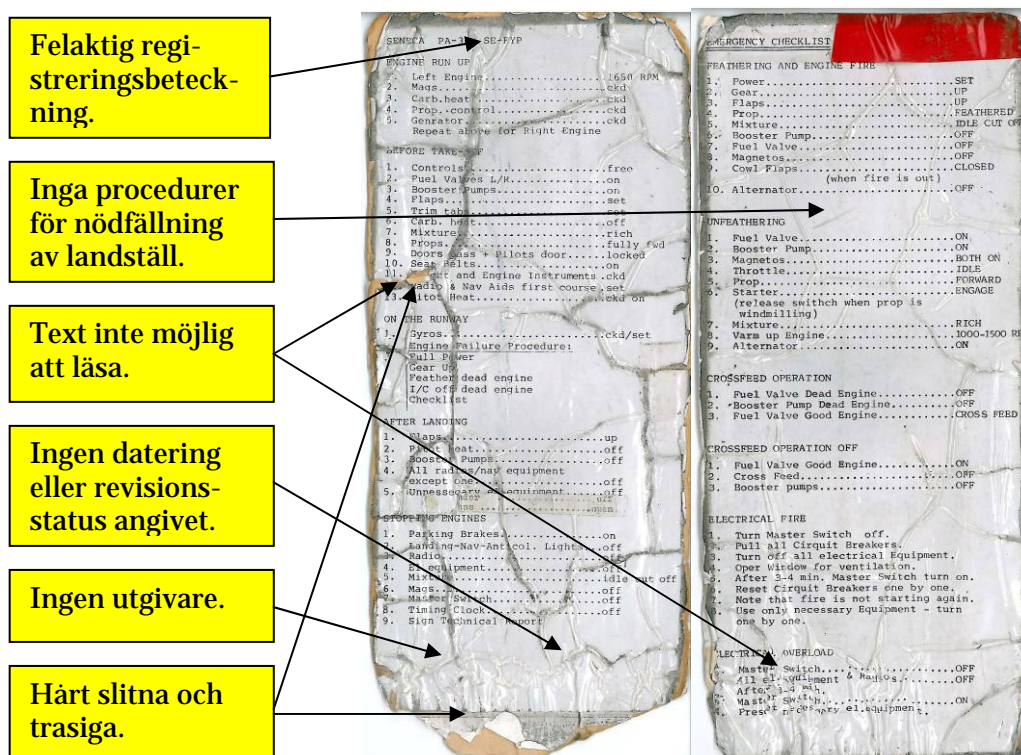 Felaktig regi-
streringsbeteck-
ning.
Inga procedurer
för nödfällning
av landställ.
Text inte möjlig
att läsa.
Ingen datering
eller revisions-
status angivet.
Ingen utgivare.
Hårt slitna och
trasiga.
SENECA PA-3 SE-FYP
ENGINE RUN UP
1. Left Engine..................1650 RPM
2. Mags.........................ckd
3. Carb.heat....................ckd
4. Prop.-control................ckd
5. Genrator.....................ckd
Repeat above for Right Engine
BEFORE TAKE-OFF
1. Controls.....................free
2. Fuel Valves L/R..............on
3. Booster Pumps................on
4. Flaps........................set
5. Trim tabs....................set
6. Carb. heat...................off
7. Mixture......................rich
8. Props........................fully fwd
9. Doors Pass + Pilots door.....locked
10. Seat Belts..................on
11. and Engine Instruments.ckd
Radio & Nav Aids first course.set
13. Pitot Heat..................ckd on
ON THE RUNWAY
1. Gyros........................ckd/set
Engine Failure Procedure:
Full Power
Gear Up
Feather dead engine
I/C off dead engine
Checklist
AFTER LANDING
1. Flaps........................up
2. Pitot heat...................off
3. Booster Pumps................off
4. All radios/nav equipment
except one...................off
5. Unnessecary el equipment.....off
off
open
STOPPING ENGINES
1. Parking Brakes...............on
2. Landing-Nav-Anticol. Lights..off
3. Radio........................off
4. El equipment.................off
5. Mixture......................idle cut off
6. Mags.........................off
7. Master Switch................off
8. Timing Clock.................off
9. Sign Technical Report
EMERGENCY CHECKLIST
FEATHERING AND ENGINE FIRE
1. Power........................SET
2. Gear.........................UP
3. Flaps........................UP
4. Prop.........................FEATHERED
5. Mixture......................IDLE CUT OFF
6. Booster Pump.................OFF
7. Fuel Valve...................OFF
8. Magnetos.....................OFF
9. Cowl Flaps...................CLOSED
(when fire is out)
10. Alternator..................OFF
UNFEATHERING
1. Fuel Valve...................ON
2. Booster Pump.................ON
3. Magnetos.....................BOTH ON
4. Throttle.....................IDLE
5. Prop.........................FORWARD
6. Starter......................ENGAGE
(release swithch when prop is
windmilling)
7. Mixture......................RICH
8. Varm up Engine...............1000-1500 R
9. Alternator...................ON
CROSSFEED OPERATION
1. Fuel Valve Dead Engine.......OFF
2. Booster Pump Dead Engine.....OFF
3. Fuel Valve Good Engine.......CROSS FEED
CROSSFEED OPERATION OFF
1. Fuel Valve Good Engine.......ON
2. Cross Feed...................OFF
3. Booster pumps................OFF
ELECTRICAL FIRE
1. Turn Master Switch off.
2. Pull all Cirquit Breakers.
3. Turn off all electrical Equipment.
Oper Window for ventilation.
5. After 3-4 min. Master Switch turn on.
6. Reset Cirquit Breakers one by one.
7. Note that fire is not starting again.
8. Use only necessary Equipment - turn
one by one.
ELECTRICAL OVERLOAD
Master Switch................OFF
All el.equipment & Radios....OFF
After 3-4 min.
Master Switch................ON
4. el.equipment.